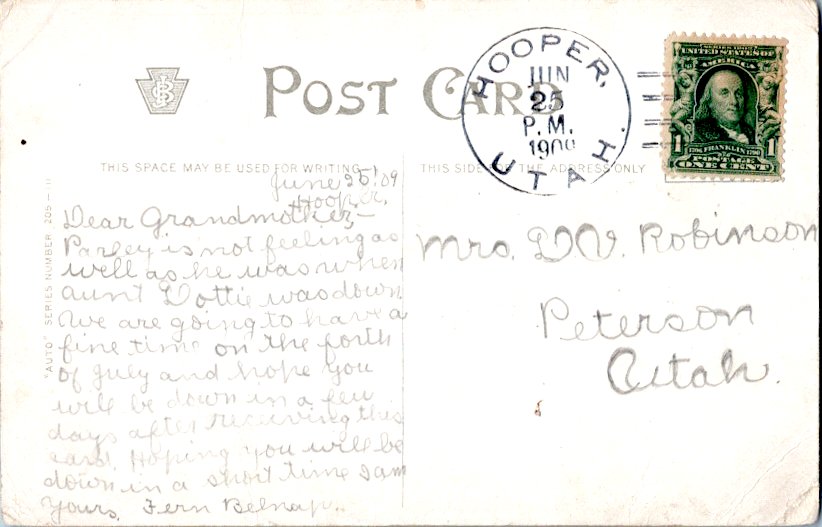 POST CARD
HOOPER,
JUN
25
P.M.
1909
UTAH.
SERIES 1902
UNITED STATES OF
AMERICA
1 1
1706 FRANKLIN 1790
POSTAGE
ONE CENT
THIS SPACE MAY BE USED FOR WRITING
THIS SIDE FOR THE ADDRESS ONLY
"AUTO" SERIES NUMBER 205-III
June 25, 09
Hooper,
Dear Grandmother,-
Parley is not feeling as
well as he was when
aunt Dottie was down
We are going to have a
fine time on the forth
of July and hope you
will be down in a few
days after receiving this
card. Hoping you will be
down in a short time I am
Yours, Fern Belnap.
Mrs. D.V. Robinson
Peterson
Utah.